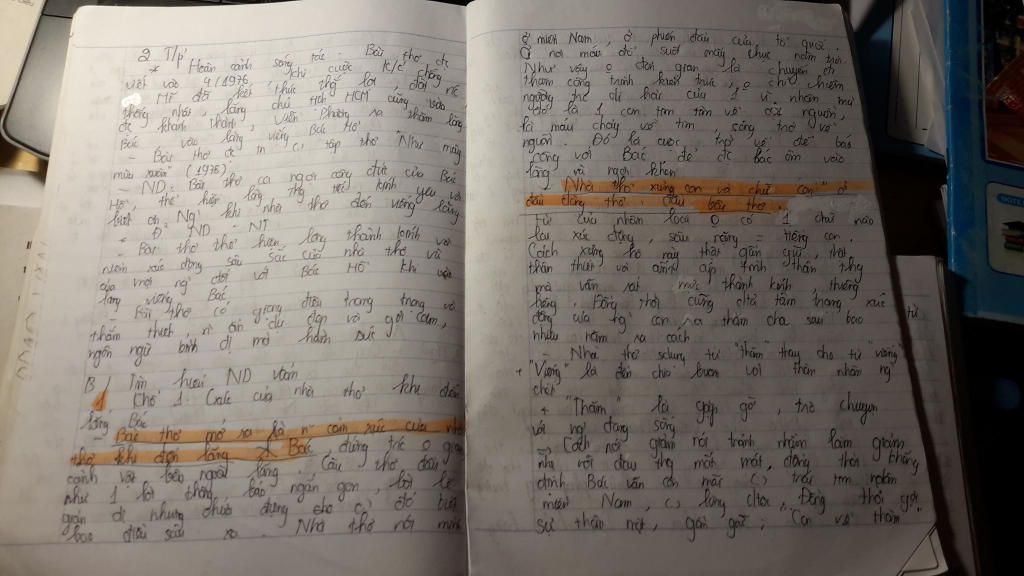 2. T/p'
* Hoàn cảnh sáng tác: Bài thơ đc
viết vào 4/1976, khi cuộc k/c chống
Mĩ đã kết thúc thắng lợi, đất nc
thống nhất, lăng chủ tịch HCM cũng vừa
đc khánh thành, Viễn Phương ra thăm lăng
Bác vào lăng viếng Bác Hồ.
- Bài thơ đc in trong tập thơ "Như mây
mùa xuân" (1978)
- ND: Bài thơ ca ngợi công đức của Bác
Hồ, thể hiện lòng tiếc kính yêu và
biết ơn khi nhà thơ đến viếng lăng
* ND - NT
- Bài thơ thể hiện lòng thành kính và
niềm xúc động sâu sắc của nhà thơ và
của mọi ng' đối với Bác Hồ khi vào
lăng viếng Bác
- Bài thơ có giọng điệu trang trọng và
tha thiết, n' ẩn dụ đẹp và gợi cảm,
ngôn ngữ bình dị mà hàm súc
B/ Tìm hiểu ND văn
1 Khổ 1: C/xúc của nhà thơ khi đến
lăng Bác
- Bài thơ mở ra là n' cảm xúc của nhà
thơ khi đến lăng Bác đứng trc o gian
cảnh vật bên ngoài lăng. Câu thơ đầu
như 1 lời thông báo ngắn gọn, lời lẽ
giản dị nhưng chứa đựng cho ta đó biết
bao điều sâu xa. Nhà thơ nói mình
ở miền Nam, ở phiến đầu của tổ quốc
Ở nơi máu đổ suốt mấy chục năm trời
Như vậy o đơn giản là chuyến đi
thăm công trình kiến trúc, o chỉ chiêm
ngưỡng trc di hài của 1 vĩ nhân mà
đó là 1 con tim tâm về cội nguồn,
là máu chảy về tim, sông trở về
nguồn. Đó là cuộc trở về để báo
công với Bác, để đc Bác ôm vào
lòng và ngợi khen
- Nhà thơ xưng con và chữ "con" ở
đầu dòng thơ, đầu bài thơ.
Từ của nhân loại o có 1 chữ nào
lại xúc động, sâu nặng = tiếng con.
Cách xưng hô này thật gần gũi, thật
thân thiết và ấm áp tình thân thg
mà vẫn rất mực thành kính, thiêng
liêng. Đồng thời cũng chỉ tâm trạng xúc
động của ng' con ra thăm cha sau bao
nhiêu năm xa cách
- Nhà thơ sdụng từ "thăm" thay cho từ "viếng"
+ "Viếng" là đến chia buồn với thân nhân ng'
chết
+ "Thăm" là gặp gỡ, trò chuyện
với ng' đang sống
→ Cách nói giảm nói tránh nhằm làm giảm
nhẹ nỗi đau thg mất mát, đồng thời khẳng
định Bác vẫn còn mãi trong trái tim nhân
miền Nam, trong lòng . Đồng thời gợi
sự thân mật, gần gũi; Con về thăm